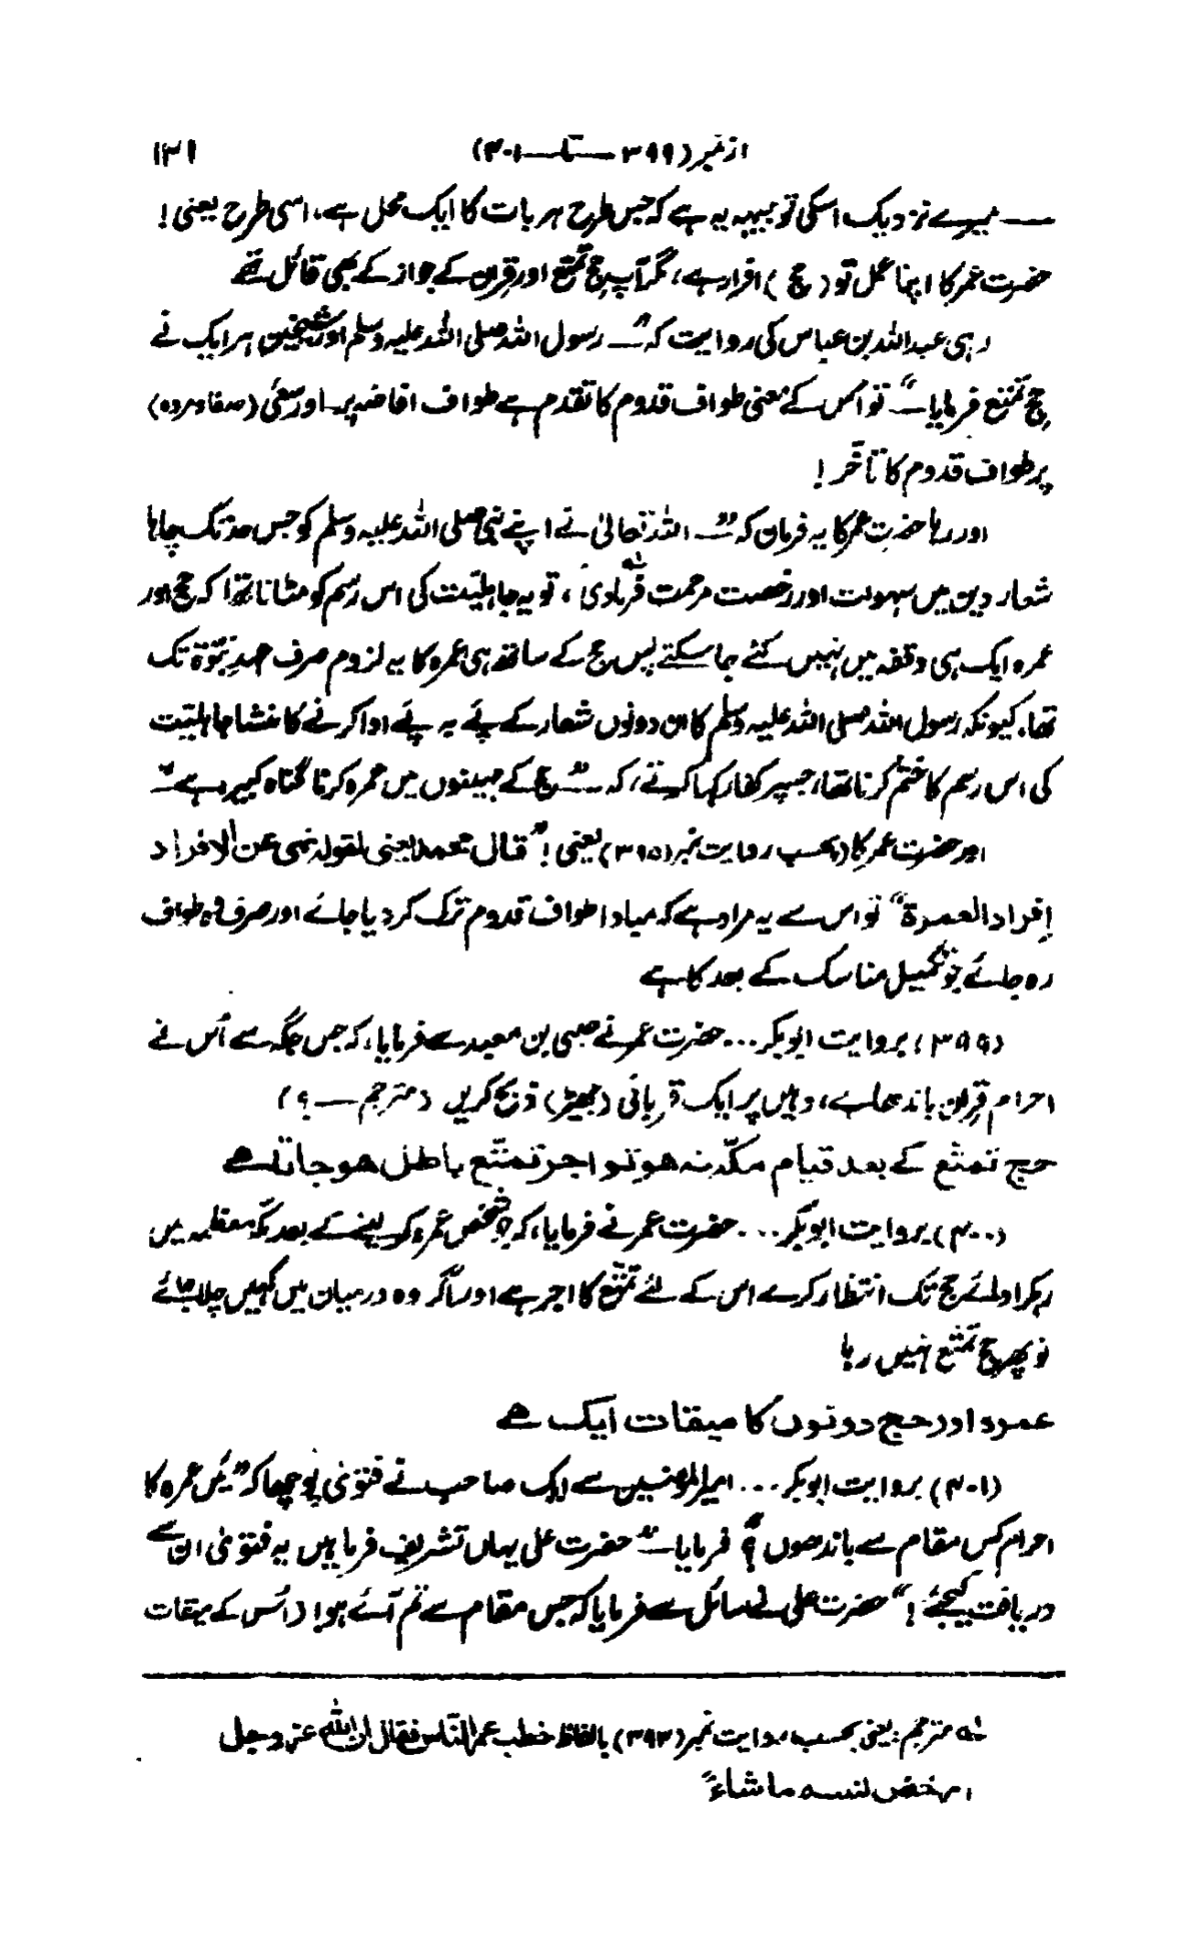 ۱۳۱ از نمبر (۳۹۹ — تا — ۴۰۱)
— میرے نزدیک اسکی توجیہہ یہ ہے کہ جس طرح ہر بات کا ایک محل ہے، اسی طرح یعنی!
حضرت عمر کا اپنا عمل تو (حج) افراد ہے، مگر آپ حج تمتع اور قِران کے جواز کے بھی قائل تھے
رہی عبداللہ بن عباس کی روایت کہ "— رسول اللہ صلی اللہ علیہ وسلم اور شیخین ہر ایک نے
حج تمتع فرمایا —" تو اس کے معنی طواف قدوم کا تقدم ہے طواف افاضہ پر۔ اور سعی (صفا و مروہ)
پر طواف قدوم کا تأخر!
اور رہا حضرت عمر کا یہ فرمان کہ "— اللہ تعالیٰ نے اپنے نبی صلی اللہ علیہ وسلم کو جس حد تک چاہا
شعار دین میں سہولت اور رخصت مرحمت فرمادی"، تو یہ جاہلیّت کی اس رسم کو مٹانا تھا کہ حج اور
عمرہ ایک ہی وقفہ میں نہیں کئے جاسکتے پس حج کے ساتھ ہی عمرہ کا یہ لزوم صرف عہد نبوّۃ تک
تھا۔ کیونکہ رسول اللہ صلی اللہ علیہ وسلم کا ان دونوں شعار کے پے بہ پے ادا کرنے کا منشا جاہلیّت
کی اس رسم کا ختم کرنا تھا، جسپر کفار کہا کرتے، کہ "— حج کے مہینوں میں عمرہ کرنا گناہ کبیر ہے —"
اور حضرت عمر کا (بحسب روایت نمبر (۳۹۵) یعنی! "قال محمد یعنی لقولہ نھی عن الافراد
اِفراد العمرۃ" تو اس سے یہ مراد ہے کہ مبادا طواف قدوم ترک کر دیا جائے اور صرف وہ طواف
رہ جائے جو تکمیل مناسک کے بعد کا ہے
(۳۹۹) بروایت ابوبکر... حضرت عمر نے صبی بن معبد سے فرمایا، کہ جس جگہ سے اُس نے
احرام قِران باندھا ہے، وہیں پر ایک قربانی (بھیڑ) ذبح کریں (مترجم — ؟)
حج تمتّع کے بعد قیام مکّہ نہ ہو تو اجر تمتّع باطل ہو جاتا ہے
(۴۰۰) بروایت ابوبکر... حضرت عمر نے فرمایا، کہ جو شخص عمرہ کر لینے کے بعد مکہ معظمہ میں
رہ کر ادائے حج تک انتظار کرے اس کے لئے تمتّع کا اجر ہے اور اگر وہ درمیان میں کہیں چلا جائے
تو پھر حج تمتّع نہیں رہا
عمرہ اور حج دونوں کا میقات ایک ہے
(۴۰۱) بروایت ابوبکر... امیر المومنین سے ایک صاحب نے فتویٰ پوچھا کہ "میں عمرہ کا
احرام کس مقام سے باندھوں؟" فرمایا —" حضرت علی یہاں تشریف فرما ہیں یہ فتویٰ ان سے
دریافت کیجئے!" حضرت علی نے سائل سے فرمایا کہ جس مقام سے تم آئے ہو! (اُس کے میقات
لہ مترجم: یعنی بحسب روایت نمبر (۳۹۳) بالفاظ خطب عمر الناس فقال ان اللہ عز وجل
رخص لنبیہ ما شاء"